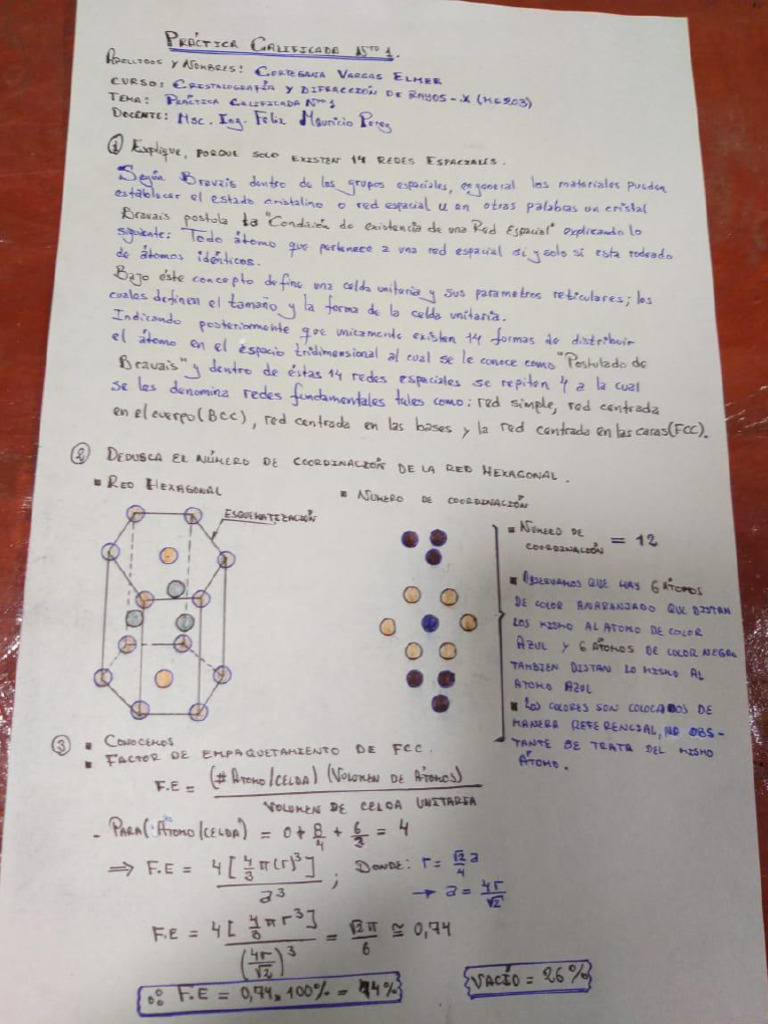 PRÁCTICA CALIFICADA Nto 1.
APELLIDOS Y NOMBRES: CORTEGANA VARGAS ELMER
CURSO: CRISTALOGRAFÍA Y DIFRACCIÓN DE RAYOS-X (MG203)
TEMA: PRÁCTICA CALIFICADA Nto 1
DOCENTE: Msc. Ing. Felix Mauricio Perez
① Explique, PORQUE SOLO EXISTEN 14 REDES ESPACIALES.
Según Bravais dentro de los grupos espaciales, en general los materiales pueden
establecer el estado cristalino o red espacial u en otras palabras un cristal
Bravais postula la "Condición de existencia de una Red Espacial" explicando lo
siguiente: Todo átomo que pertenece a una red espacial si y solo si esta rodeado
de átomos idénticos.
Bajo éste concepto define una celda unitaria y sus parametros reticulares; los
cuales definen el tamaño y la forma de la celda unitaria.
Indicando posteriormente que unicamente existen 14 formas de distribuir
el átomo en el espacio tridimensional al cual se le conoce como "Postulado de
Bravais" y dentro de éstas 14 redes espaciales se repiten 4 a la cual
se les denomina redes fundamentales tales como: red simple, red centrada
en el cuerpo (BCC), red centrada en las bases y la red centrada en las caras (FCC).
② DEDUSCA EL NÚMERO DE COORDINACIÓN DE LA RED HEXAGONAL.
▪ RED HEXAGONAL
▪ NUMERO DE COORDINACIÓN
ESQUEMATIZACIÓN
▪ NÚMERO DE COORDINACIÓN = 12
▪ OBSERVAMOS QUE HAY 6 ÁTOMOS
DE COLOR ANARANJADO QUE DISTAN
LOS MISMO AL ATOMO DE COLOR
AZUL Y 6 ÁTOMOS DE COLOR NEGRO
TAMBIEN DISTAN LO MISMO AL
ATOMO AZUL
▪ LOS COLORES SON COLOCADOS DE
MANERA REFERENCIAL, NO OBS-
TANTE SE TRATA DEL MISMO
ÁTOMO.
③ ▪ CONOCEMOS
▪ FACTOR DE EMPAQUETAMIENTO DE FCC.
F.E = (# ATOMO/CELDA) (VOLUMEN DE ÁTOMOS) / VOLUMEN DE CELDA UNITARIA
- PARA (ATOMO/CELDA) = 0 + 8/4 + 6/3 = 4
⇒ F.E = 4[4/3 π(r)³] / a³ ; DONDE: r = √2/4 a
→ a = 4r/√2
F.E = 4[4/3 πr³] / (4r/√2)³ = √2π/6 ≅ 0,74
∴ F.E = 0,74 x 100% = 74%
VACÍO = 26%